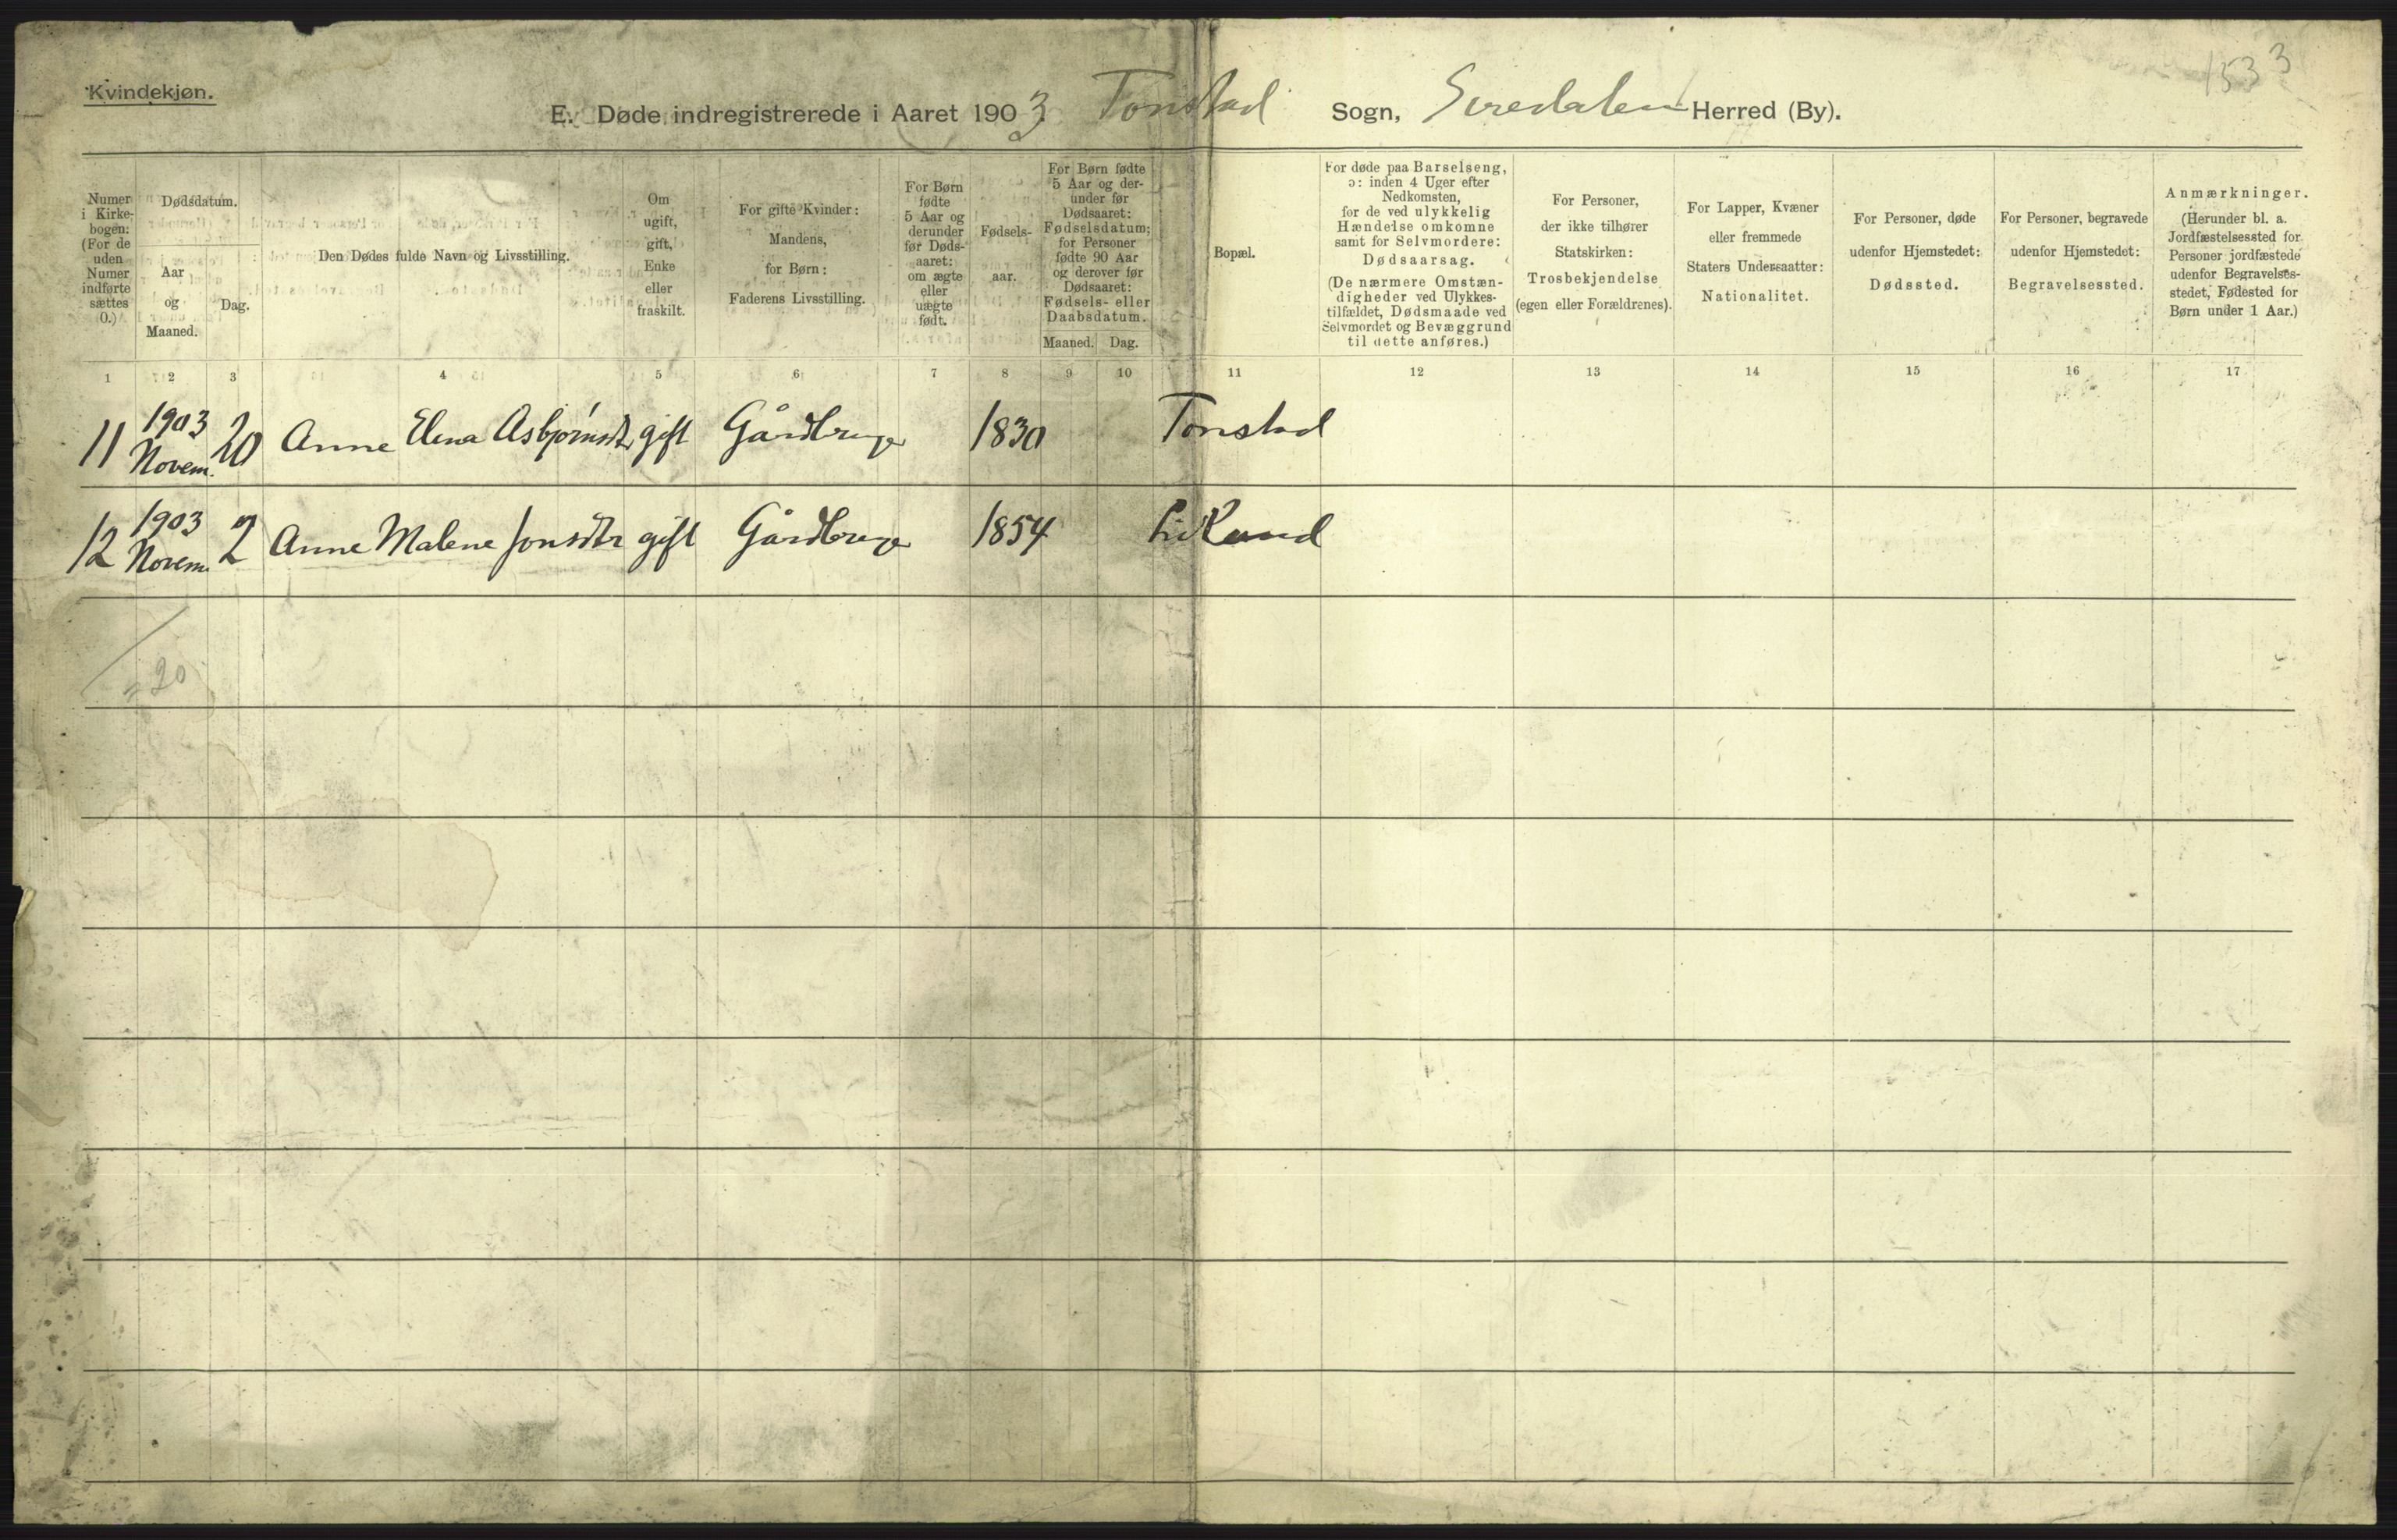 Kvindekjøn.
E. Døde indregistrerede i Aaret 1903 Tonstad Sogn, Siredalen Herred (By).
1533
Numer i Kirkebogen: (For de uden Numer indførte sættes 0.)
Dødsdatum.
Aar og Maaned.
Dag.
Den Dødes fulde Navn og Livsstilling.
Om ugift, gift, Enke eller fraskilt.
For gifte Kvinder: Mandens, for Børn: Faderens Livsstilling.
For Børn fødte 5 Aar og derunder før Dødsaaret: om ægte eller uægte født.
Fødselsaar.
For Børn fødte 5 Aar og derunder før Dødsaaret: Fødselsdatum; for Personer fødte 90 Aar og derover før Dødsaaret: Fødsels- eller Daabsdatum.
Maaned. Dag.
Bopæl.
For døde paa Barselseng, ɔ: inden 4 Uger efter Nedkomsten, for de ved ulykkelig Hændelse omkomne samt for Selvmordere: Dødsaarsag. (De nærmere Omstændigheder ved Ulykkestilfældet, Dødsmaade ved Selvmordet og Bevæggrund til dette anføres.)
For Personer, der ikke tilhører Statskirken: Trosbekjendelse (egen eller Forældrenes).
For Lapper, Kvæner eller fremmede Staters Undersaatter: Nationalitet.
For Personer, døde udenfor Hjemstedet: Dødssted.
For Personer, begravede udenfor Hjemstedet: Begravelsessted.
Anmærkninger. (Herunder bl. a. Jordfæstelsessted for Personer jordfæstede udenfor Begravelsesstedet, Fødested for Børn under 1 Aar.)
1 2 3 4 5 6 7 8 9 10 11 12 13 14 15 16 17
11 1903 Novem. 20 Anne Elena Asbjørnsdtr gift Gårdbruger 1830 Tonstad
12 1903 Novem. 2 Anne Malene Jonsdtr gift Gårdbruger 1854 
20